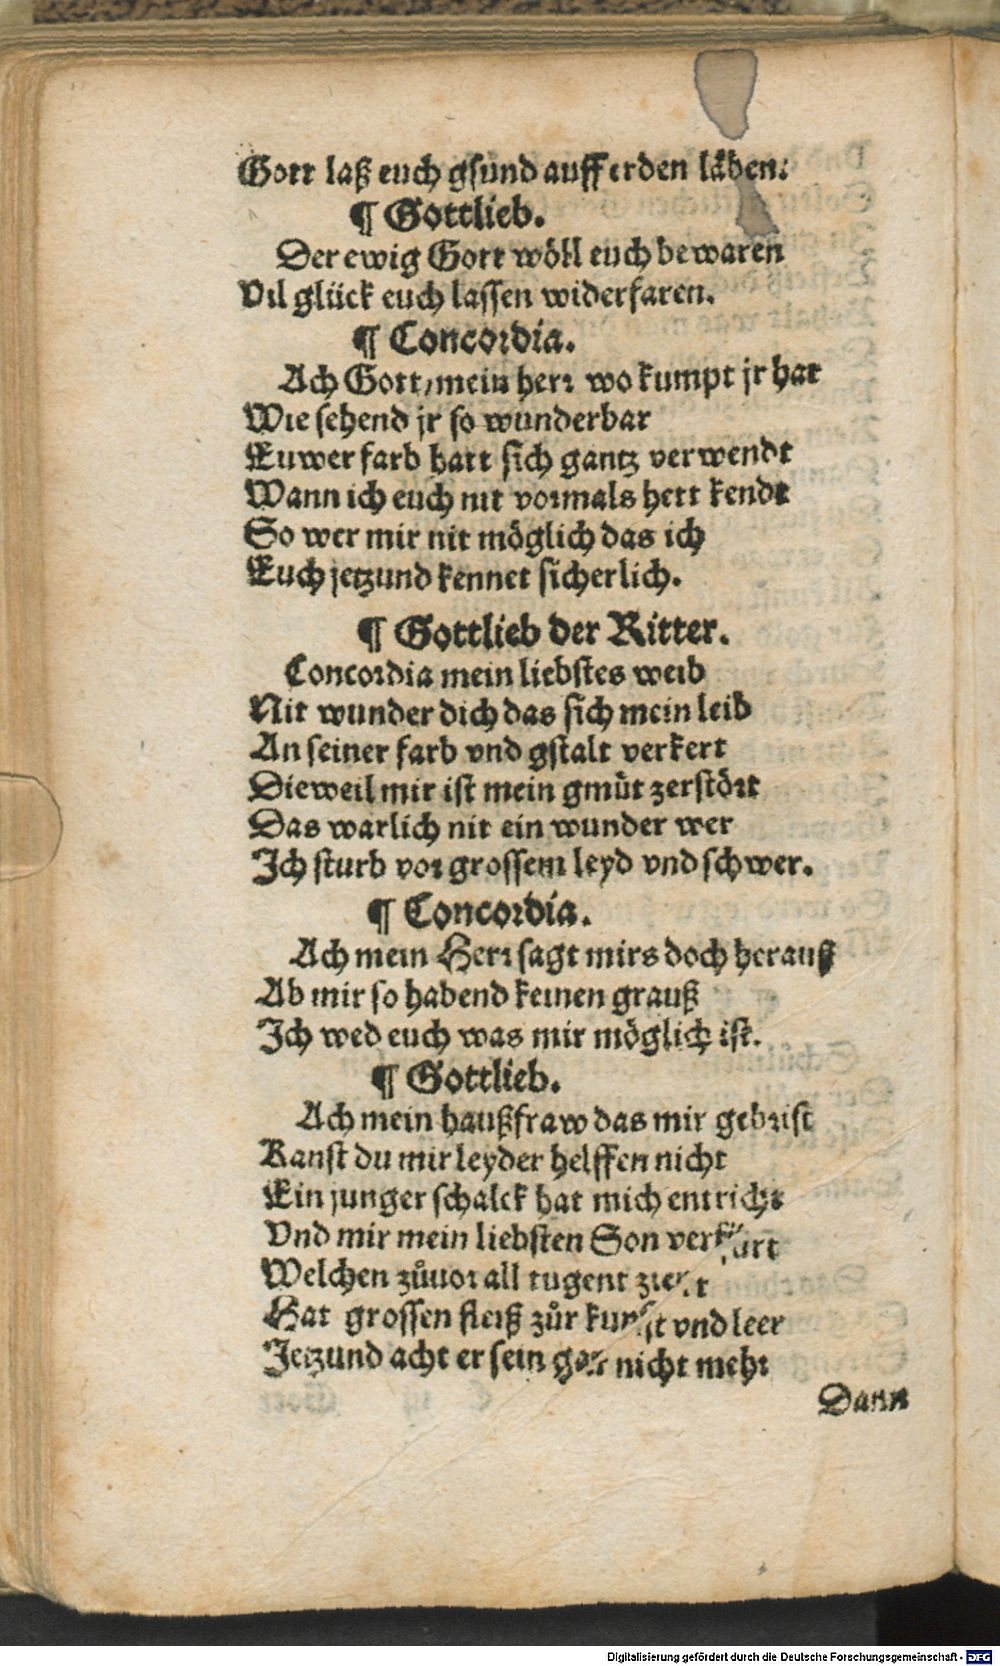 Gott laß euch gsund auff erden läben.
¶ Gottlieb.
Der ewig Gott wöll euch bewaren
Vil glück euch lassen widerfaren.
¶ Concordia.
Ach Gott/mein herr wo kumpt jr har
Wie sehend jr so wunderbar
Euwer farb hatt sich gantz verwendt
Wann ich euch nit vormals hett kendt
So wer mir nit möglich das ich
Euch jetzund kennet sicherlich.
¶ Gottlieb der Ritter.
Concordia mein liebstes weib
Nit wunder dich das sich mein leib
An seiner farb vnd gstalt verkert
Dieweil mir ist mein gmüt zerstört
Das warlich nit ein wunder wer
Ich sturb vor grossem leyd vnd schwer.
¶ Concordia.
Ach mein Herr sagt mirs doch herauß
Ab mir so habend keinen grauß
Ich wed euch was mir möglich ist.
¶ Gottlieb.
Ach mein haußfraw das mir gebrist
Kanst du mir leyder helffen nicht
Ein junger schalck hat mich entricht
Vnd mir mein liebsten Son verfürt
Welchen zůuor all tugent ziert
Hat grossen fleiß zůr kunst vnd leer
Jetzund acht er sein gar nicht mehr
Dann
Digitalisierung gefördert durch die Deutsche Forschungsgemeinschaft - DFG